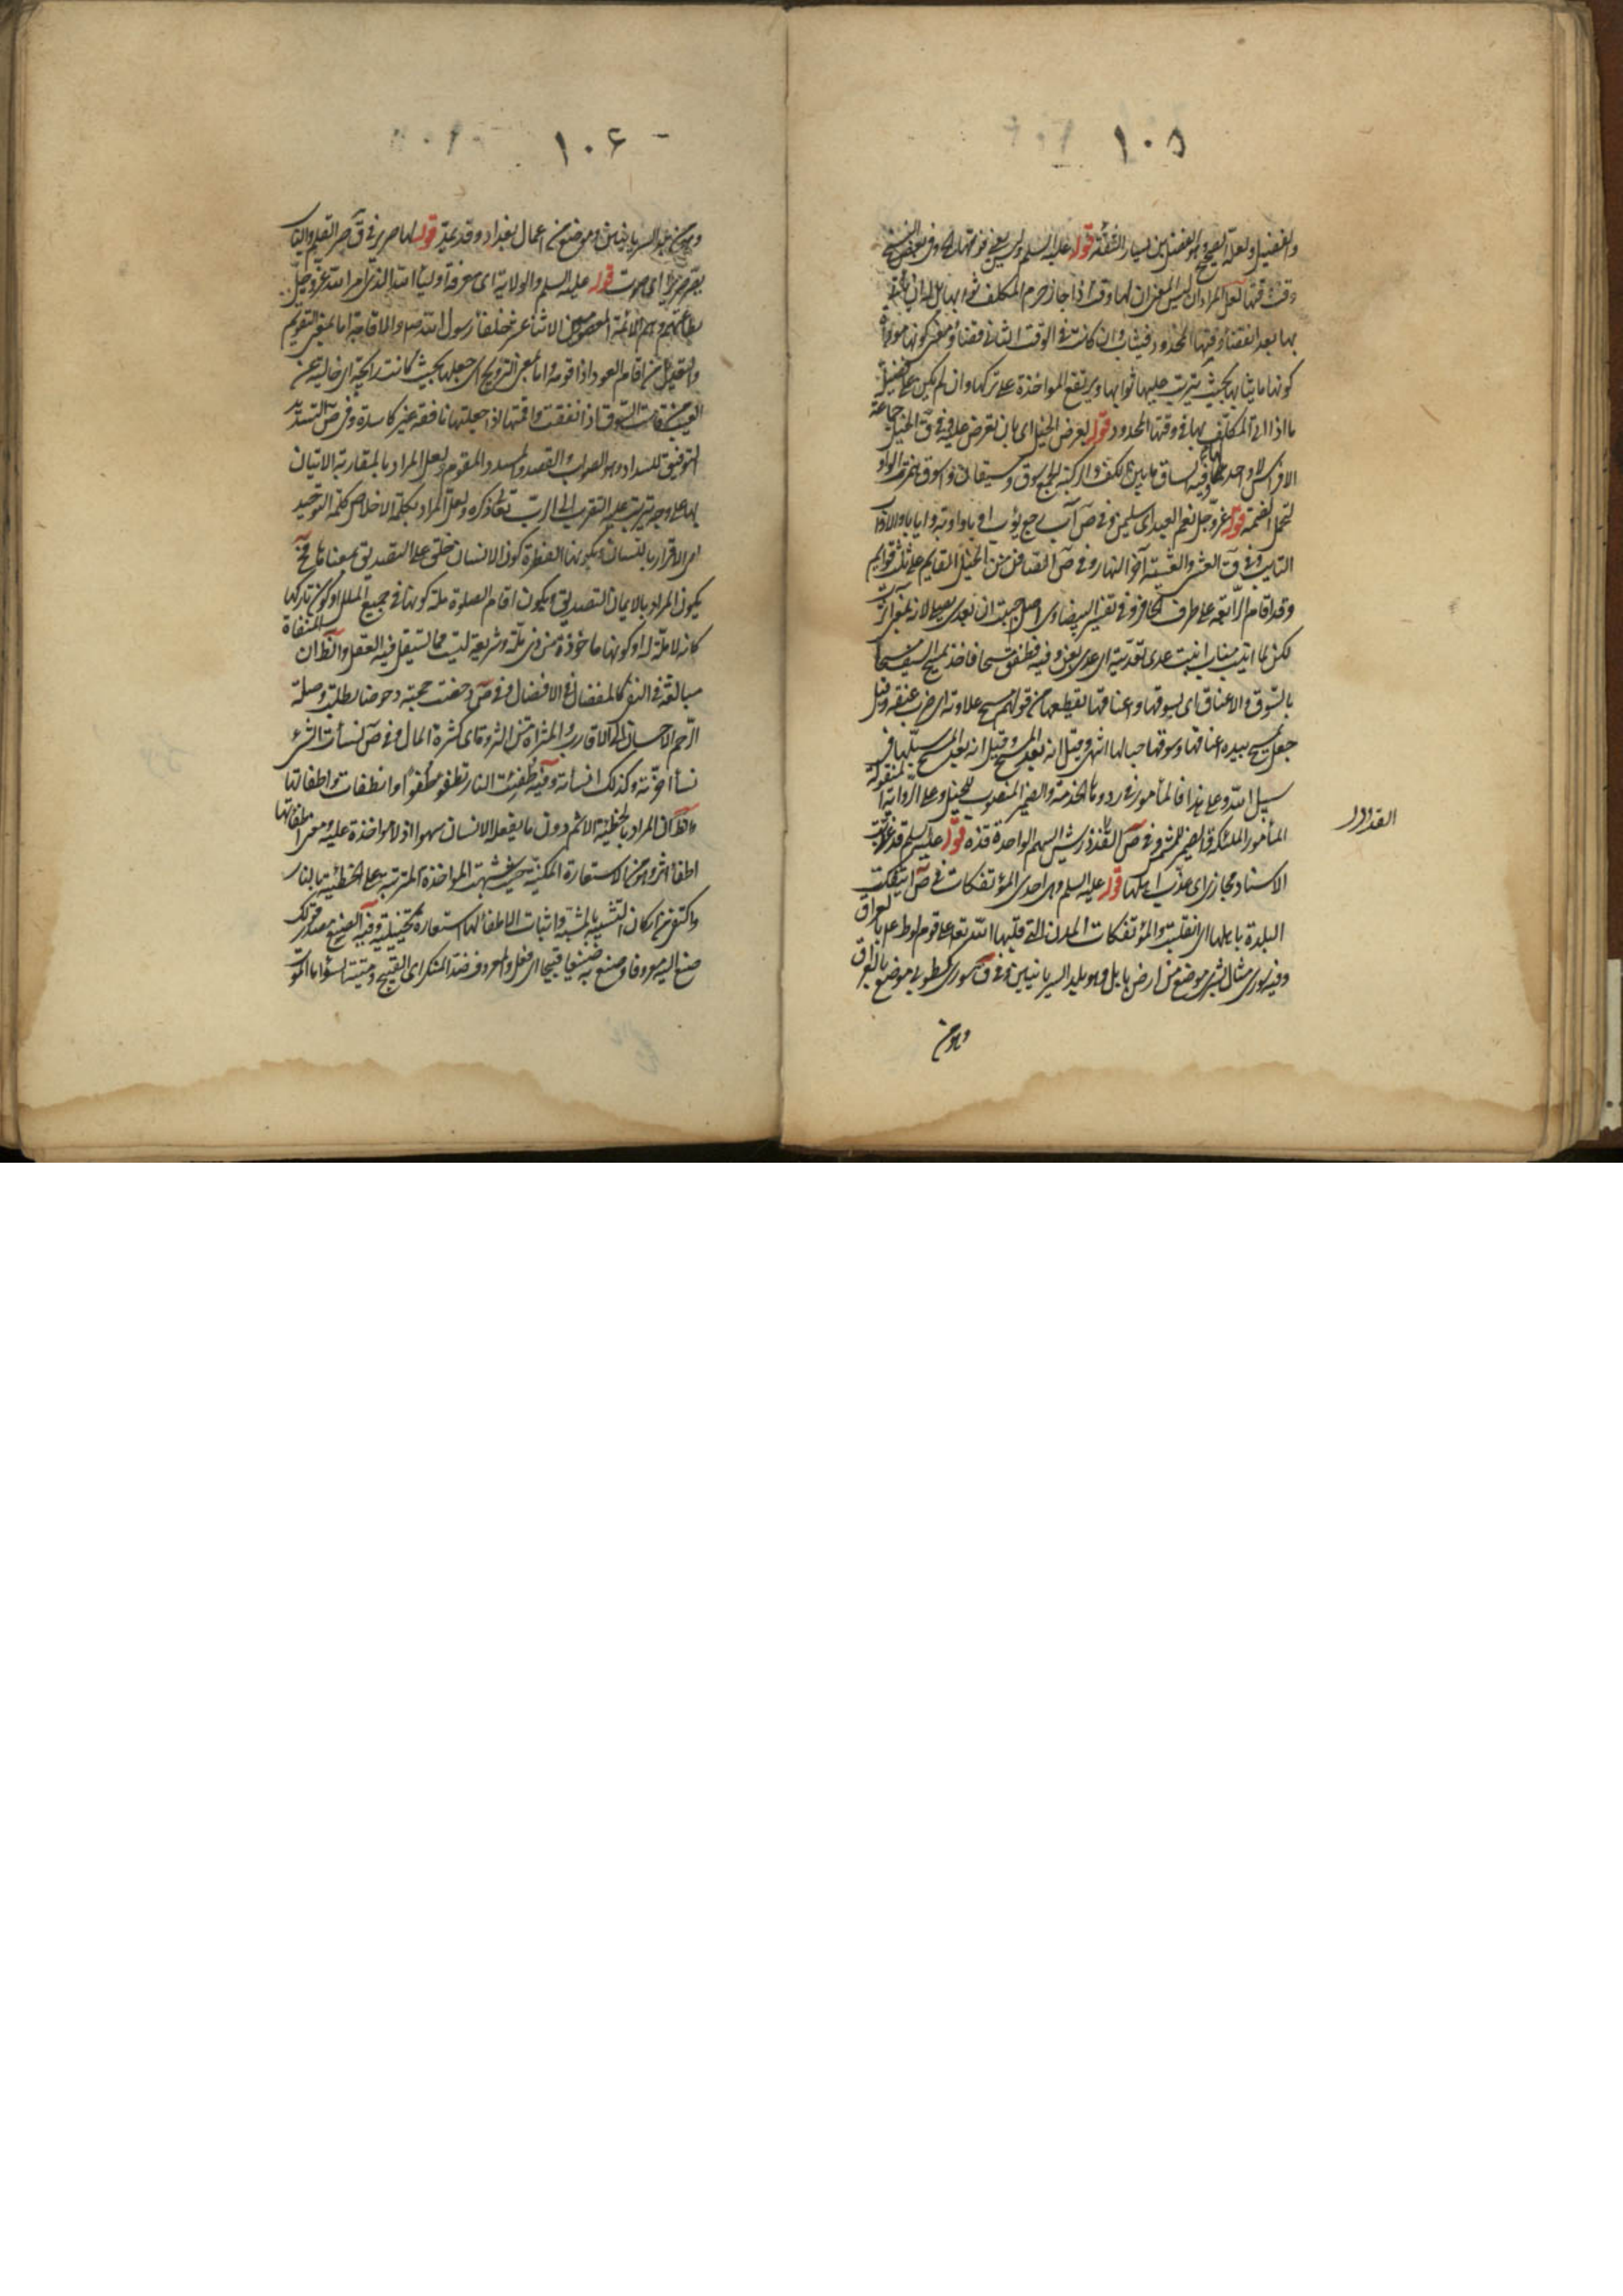 ١٠٥
والفضيل ولعله الصحيح وهو الفضيل بن يسار الثقة قوله عليه السلم وليس يعنى فوتها وفى بعض النسخ
وقت فوتها لعل المراد ان ليس المعنى ان لها وقت اذا جاز حرم المكلف ثوابها بل له ان يأتى
بها بعد انقضاء وقتها المحدود فيثاب وان كانت فى الوقت الثانى قضاء ومعنى كونها موداة
كونها مما يثاب بحيث يترتب عليها ثوابها ويرتفع المواخذة على تركها وان لم يكن على فضيلة
ما اذا اتى المكلف بها فى وقتها المحدود قوله بعرض الخيل اى بان تعرض عليه وفى ق الخيل جماعة
الافراس لا واحد لها وفيه الساق ما بين الكعب والركبة ج سوق وسيقان واسوق همزت الواو
لتحمل الضمة قوله عز وجل نعم العبد اى سليمن وفى ص آب رجع يؤب اوبا واوبة وايابا والاواب
التايب وفى ق العشى والعشية آخر النهار وفى ص الصافن من الخيل القايم على ثلث قوايم
وقد اقام الرابعة على طرف الحافر وفى تفسير البيضاوى اصل احببت ان يعدى بعلى لانه بمعنى آثرت
لكن لما انيب مناب انبت عدى تعديته اى عدى بعن وفيه فطفق مسحا فاخذ يمسح السيف مسحا
بالسوق والاعناق اى بسوقها واعناقها يقطعها من قولهم مسح علاوته اى ضرب عنقه وقيل
جعل يمسح بيده اعناقها وسوقها حبا لها انتهى وقيل انه بعد المسح وقيل انه بعد المسح سبلها فى
سبيل الله وعلى هذا فالمأمور فى ردوها الخدمة والضمير المنصوب للخيل وعلى الرواية المنقولة
المأمور الملئكة والضمير للشمس وفى ص القذذ ريش السهم الواحدة قذة قوله عليه السلم قد عذبت
الاسناد مجازى اى عذب اهلها قوله عليه السلم وهى احدى المؤتفكات فى ص ائتفكت
البلدة باهلها اى انقلبت والمؤتفكات المدن التى قلبها الله تعالى على قوم لوط
وفيه سورى مثال بشرى موضع من ارض بابل وهو بلد السريانيين وفى ق سورى كطوبى موضع بالعراق
وهو من
١٠٦
وهو من بلد السريانيين وموضع من اعمال بغداد وقد يمد قوله لها صرير فى ق صر القلم والباب
يصر صريرا اى صوت قوله عليه السلم والولاية اى معرفة اولياء الله الذين امر الله عز وجل
بطاعتهم وهم الائمة المعصومين الاثنا عشر خلفاء رسول الله ص والاقامة اما بمعنى التقويم
والتعديل من اقام العود اذا قومه واما بمعنى الترويج اى جعلها بحيث كانت رايجة اى خالية عن
العيب من قامت السوق اذا نفقت واقمتها اذا جعلتها نافقة غير كاسدة وفى ص التسديد
التوفيق للسداد وهو الصواب والقصد والمسدد المقوم ولعل المراد بالمقاربة الاتيان
بها على وجه يترتب عليه التقرب الى الرب تعالى ذكره ولعل المراد بكلمة الاخلاص كلمة التوحيد
اى الاقرار باللسان وبكونها الفطرة كون الانسان خلق على التصديق بمعناها فح
يكون المراد بالايمان التصديق ويكون اقام الصلوة ملة كونها فى جميع الملل او كون تاركها
كانه لا ملة له او كونها ماخوذة من ذى ملة وشريعة ليست مما يستقل فيه العقل والظ ان المنفاة
مبالغة فى النفى كالمفضال فى الافضال وفى ص دحضت حجته دحوضا بطلت وصلة
الرحم الاحسان الى الاقارب والمثراة من الثروة اى كثرة المال وفى ص نسأت الشىء
نسأ اخرته وكذلك انسأته وفيه طفئت النار تطفؤ طفوءا وانطفات واطفاتها
والظ ان المراد بالخطيئة الاثم دون ما يفعله الانسان سهوا اذ لا مواخذة عليه ومعنى اطفائها
اطفاء اثرها وهو من الاستعارة المكنية حيث شبهت المواخذة المترتبة على الخطيئة بالنار
واكتفى من اركان التشبيه بالمشبه واثبات الاطفاء لها استعارة تخييلية وفيه الصنع مصدر قولك
صنع اليه معروفا وصنع به صنيعا قبيحا اى فعل والمعروف ضد المنكر اى القبيح وميتة السوء اما الموت